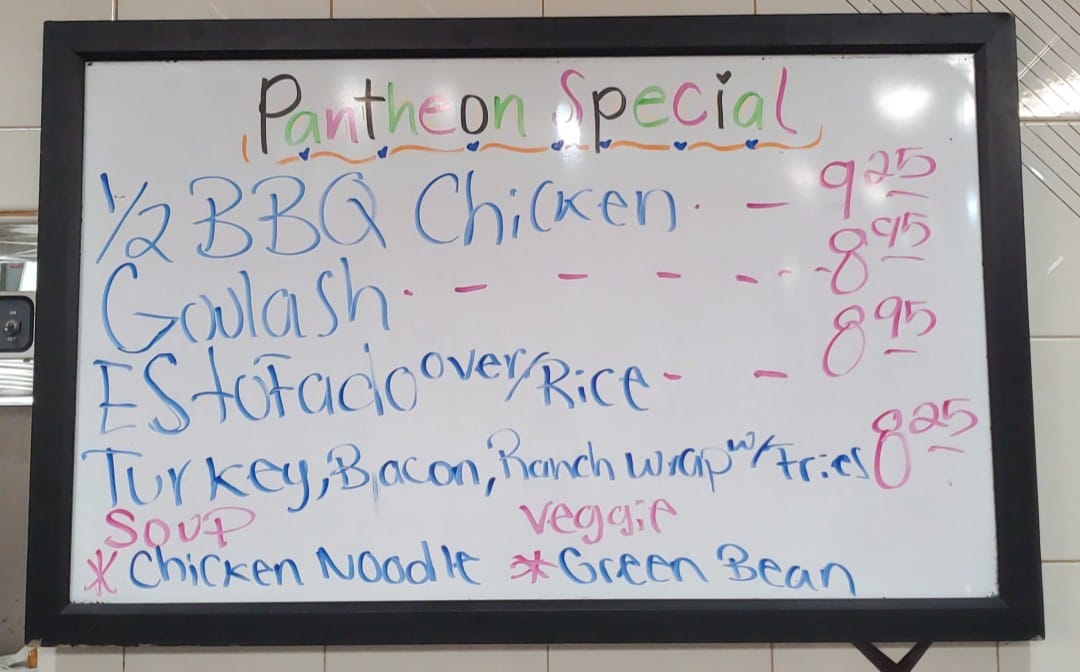 Pantheon Special
1/2 BBQ Chicken. - 9 25
Goulash. - - - - - - 8 95
EStofado over/Rice - - 8 95
Turkey, Bacon, Ranch wrap w/Fries 8 25
SOUP Veggie
*Chicken Noodle *Green Bean